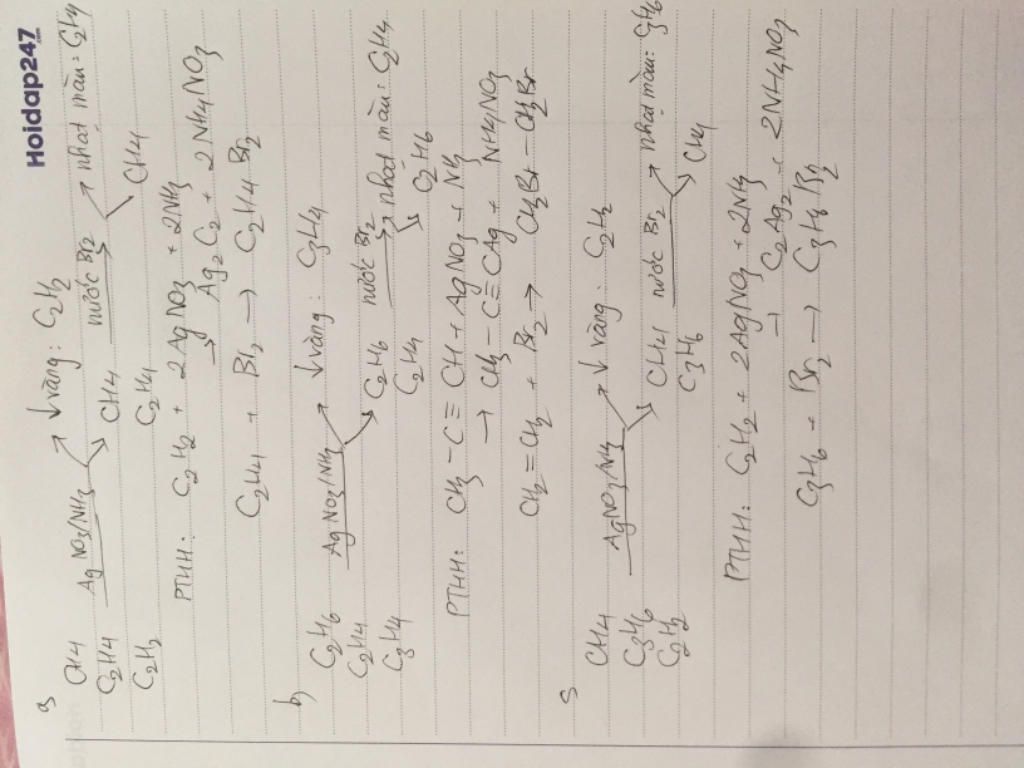 Hoidap247
a)
CH4
C2H4
C2H2
AgNO3/NH3
↓ vàng: C2H2
CH4
C2H4
nước Br2
nhạt màu: C2H4
CH4
PTHH: C2H2 + 2AgNO3 + 2NH3
→ Ag2C2 + 2NH4NO3
C2H4 + Br2 → C2H4Br2
b)
C2H6
C2H4
C3H4
AgNO3/NH3
↓ vàng: C3H4
C2H6
C2H4
nước Br2
nhạt màu: C2H4
C2H6
PTHH: CH3 - C ≡ CH + AgNO3 + NH3
→ CH3 - C ≡ CAg + NH4NO3
CH2 = CH2 + Br2 → CH2Br - CH2Br
CH4
C3H6
C2H2
AgNO3/NH3
↓ vàng: C2H2
CH4
C3H6
nước Br2
nhạt màu: C3H6
CH4
PTHH: C2H2 + 2AgNO3 + 2NH3
→ C2Ag2 + 2NH4NO3
C3H6 + Br2 → C3H6Br2